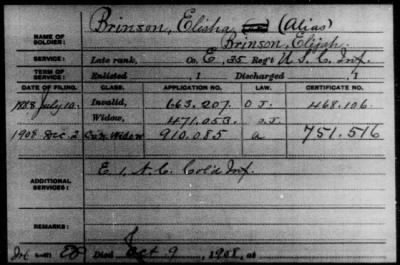 NAME OF SOLDIER: Brinson, Elisha (Alias)
Brinson, Elijah.
SERVICE: Late rank, Co. E, 35 Reg't U.S.C. Inf.
TERM OF SERVICE: Enlisted , 1 Discharged , 1
DATE OF FILING. CLASS. APPLICATION NO. LAW. CERTIFICATE NO.
1888 July 10. Invalid, 663.207. O.J. 468.106.
Widow, 471.053. O.J.
1908 Dec. 2 Widow 910.085 a 751.516
ADDITIONAL SERVICES: E. 1. N.C. Col'd Inf.
Died Oct 9, 1908, at